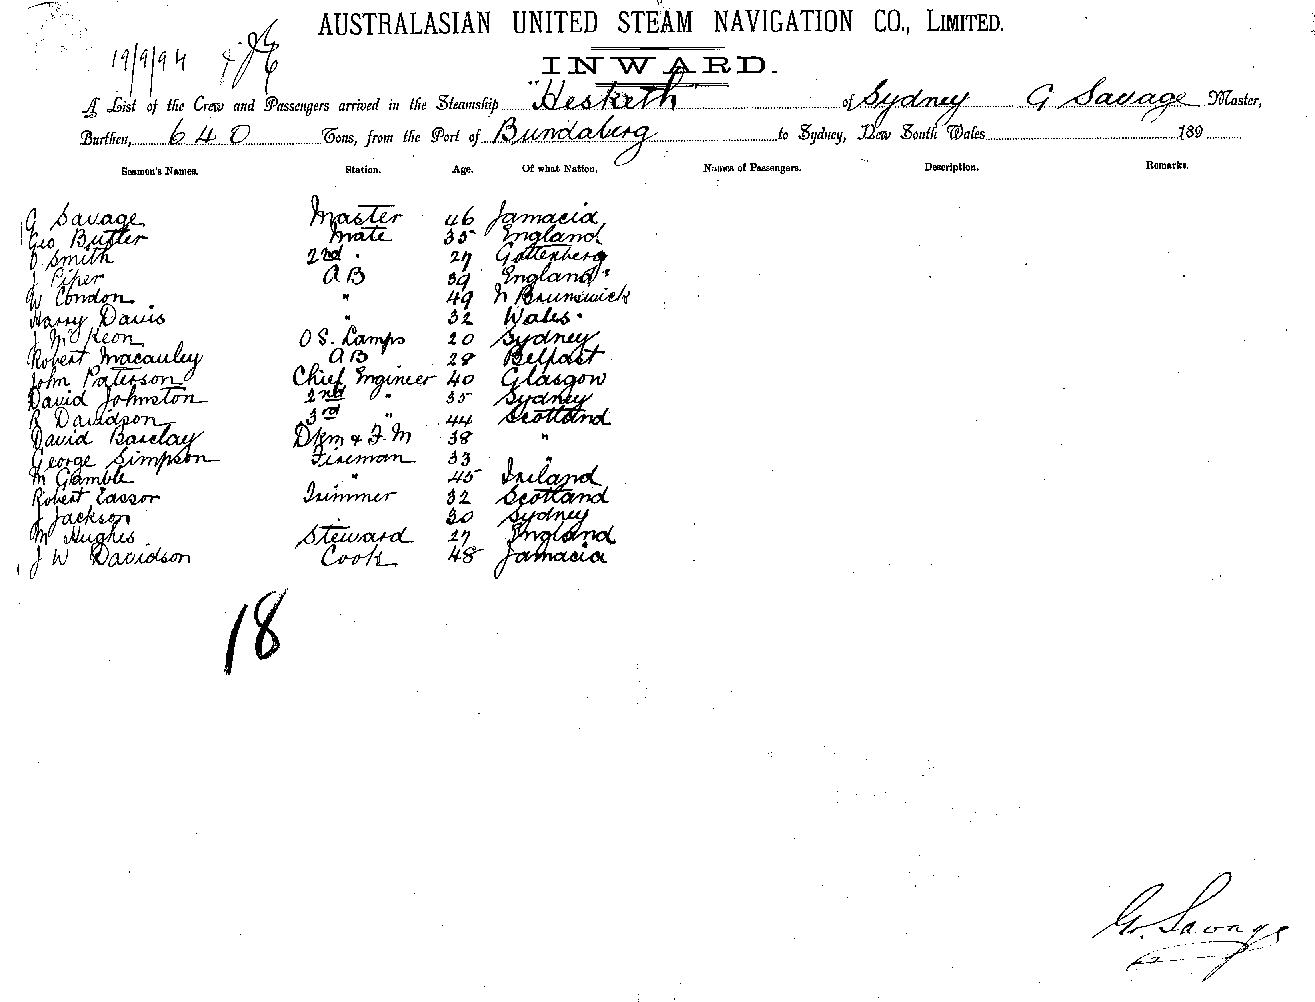 AUSTRALASIAN UNITED STEAM NAVIGATION CO., LIMITED.
19/9/94
INWARD.
A List of the Crew and Passengers arrived in the Steamship "Hesketh" of Sydney G Savage Master,
Burthen, 640 Tons, from the Port of Bundaberg to Sydney, New South Wales 189
Seamen's Names. Station. Age. Of what Nation. Names of Passengers. Description. Remarks.
G Savage Master 46 Jamacia
Geo Butler Mate 35 England
Smith 2nd " 27 Gottenberg
J Piper AB 39 England
W Condon " 49 N Brunswick
Harry Davis " 32 Wales
J McKeon OS. Lamps 20 Sydney
Robert Macauley AB 28 Belfast
John Paterson Chief Engineer 40 Glasgow
David Johnston 2nd " 35 Sydney
R Davidson 3rd " 44 Scotland
David Barclay Dkm & F.M 38 "
George Simpson Fireman 33 "
M Gamble " 45 Ireland
Robert Trimmer 32 Scotland
J Jackson 30 Sydney
M Hughes Steward 27 England
J W Davidson Cook 48 Jamacia
18
G. Savage